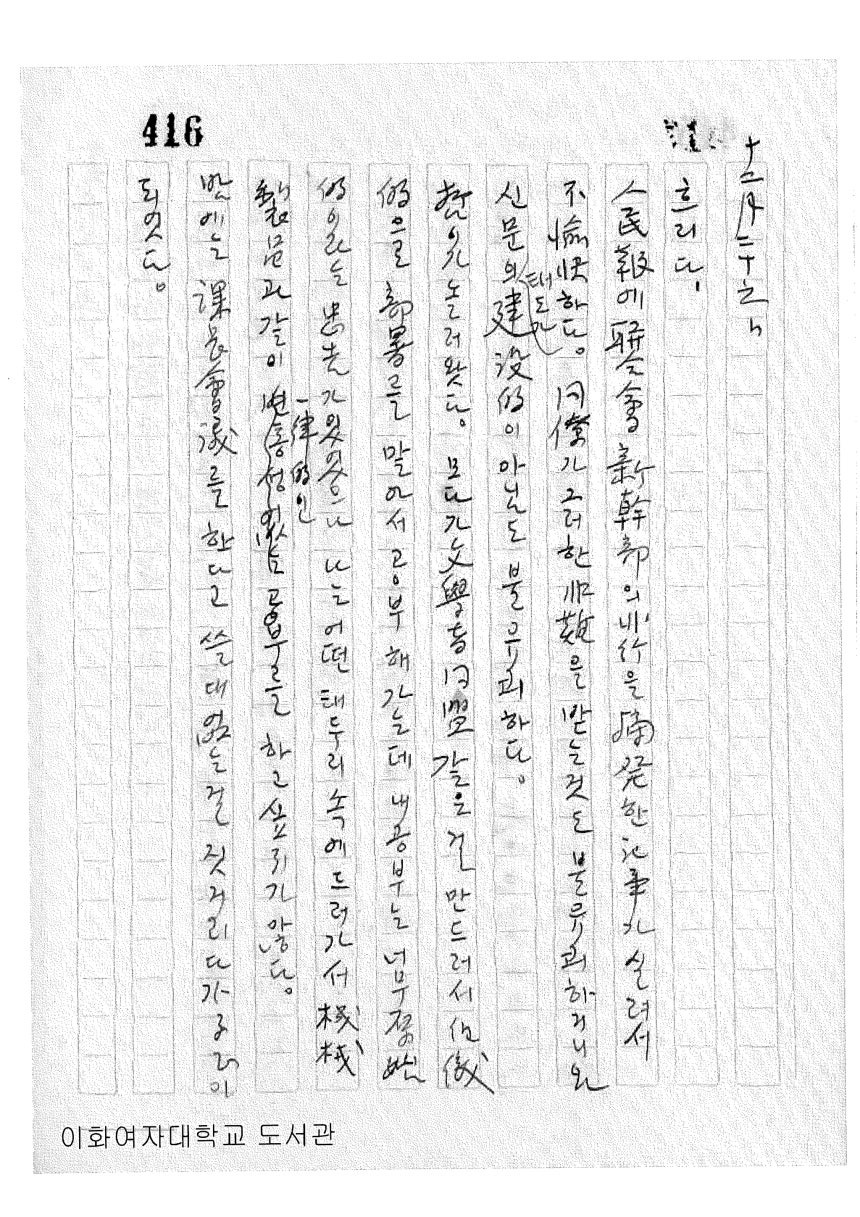 416
十二月二十九日
흐리다.
人民報에 聯合會 新幹部의 非行을 摘発한 記事가 실려서
不愉快하다。 同僚가 그러한 非難을 받는것도 불유쾌하거니와
신문의 태도가 建設的이 아님도 불유쾌하다。
놀러왓다。 모다가 文學者同盟 같은 걸 만드러서
的으로 部署를 말아서 공부해가는데 내공부는 너무
的이라는 忠告가 잇엇으나 나는 어떤 태두리 속에 드러가서 機械
製品과 같이 一律的인 변통성 없는 공부를 하고 싶지가 않다。
밤에는 課長會議를 한다고 쓸대없는 걸 짓거리다가
되엇다。
이화여자대학교 도서관